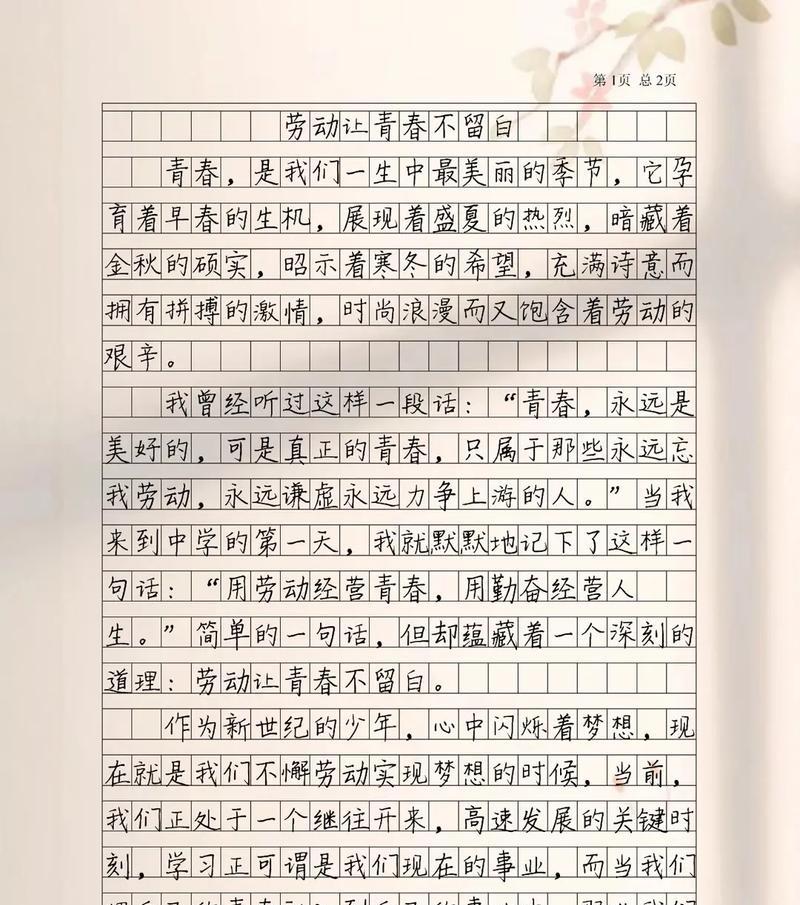 第1页 总2页
劳动让青春不留白
青春，是我们一生中最美丽的季节，它孕
育着早春的生机，展现着盛夏的热烈，暗藏着
金秋的硕实，昭示着寒冬的希望，充满诗意而
拥有拼搏的激情，时尚浪漫而又饱含着劳动的
艰辛。
我曾经听过这样一段话：“青春，永远是
美好的，可是真正的青春，只属于那些永远忘
我劳动，永远谦虚永远力争上游的人。”当我
来到中学的第一天，我就默默地记下了这样一
句话：“用劳动经营青春，用勤奋经营人
生。”简单的一句话，但却蕴藏着一个深刻的
道理：劳动让青春不留白。
作为新世纪的少年，心中闪烁着梦想，现
在就是我们不懈劳动实现梦想的时候，当前，
我们正处于一个继往开来，高速发展的关键时
刻，学习正可谓是我们现在的事业，而当我们